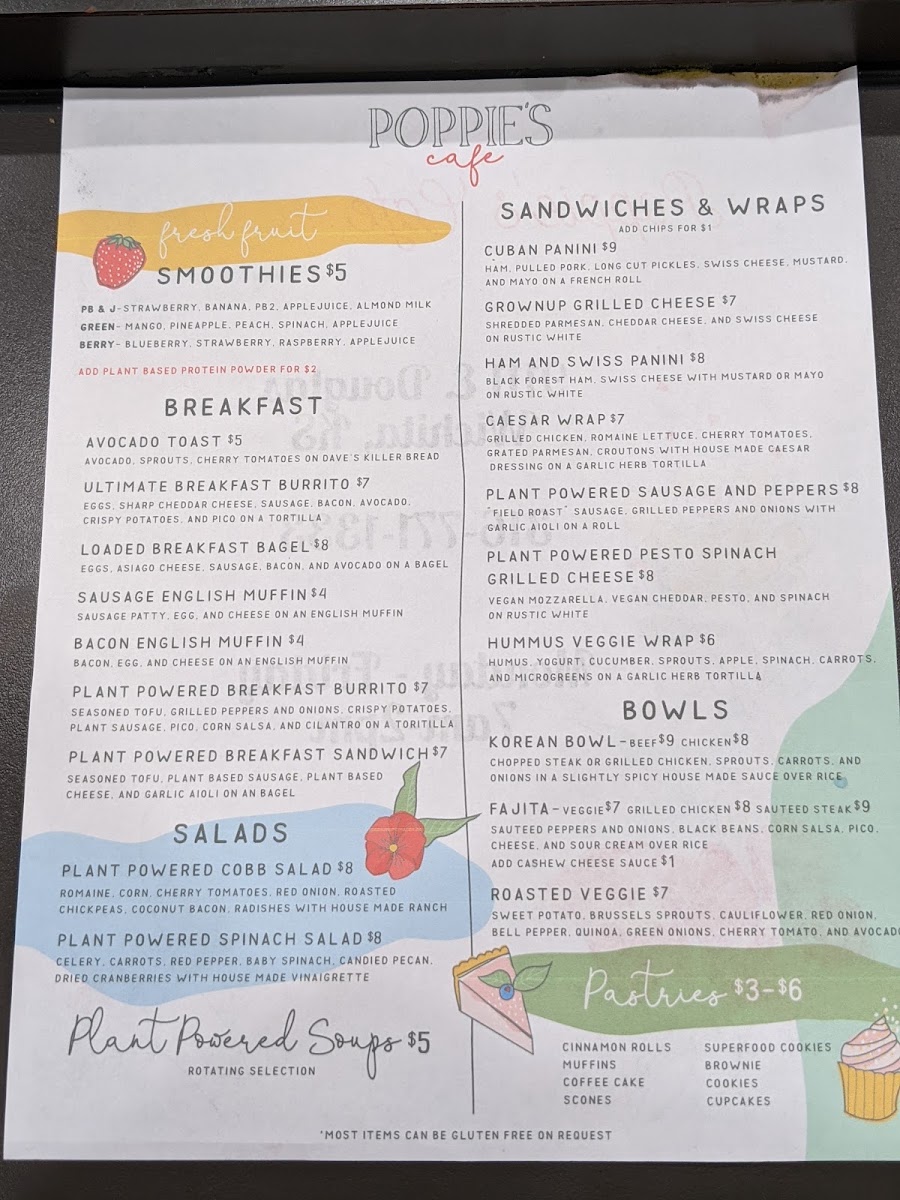 POPPIE'S
cafe
fresh fruit
SMOOTHIES $5
PB & J-STRAWBERRY, BANANA, PB2, APPLEJUICE, ALMOND MILK
GREEN- MANGO, PINEAPPLE, PEACH, SPINACH, APPLEJUICE
BERRY- BLUEBERRY, STRAWBERRY, RASPBERRY, APPLEJUICE
ADD PLANT BASED PROTEIN POWDER FOR $2
BREAKFAST
AVOCADO TOAST $5
AVOCADO, SPROUTS, CHERRY TOMATOES ON DAVE'S KILLER BREAD
ULTIMATE BREAKFAST BURRITO $7
EGGS, SHARP CHEDDAR CHEESE, SAUSAGE, BACON, AVOCADO,
CRISPY POTATOES, AND PICO ON A TORTILLA
LOADED BREAKFAST BAGEL $8
EGGS, ASIAGO CHEESE, SAUSAGE, BACON, AND AVOCADO ON A BAGEL
SAUSAGE ENGLISH MUFFIN $4
SAUSAGE PATTY, EGG, AND CHEESE ON AN ENGLISH MUFFIN
BACON ENGLISH MUFFIN $4
BACON, EGG, AND CHEESE ON AN ENGLISH MUFFIN
PLANT POWERED BREAKFAST BURRITO $7
SEASONED TOFU, GRILLED PEPPERS AND ONIONS, CRISPY POTATOES,
PLANT SAUSAGE, PICO, CORN SALSA, AND CILANTRO ON A TORITILLA
PLANT POWERED BREAKFAST SANDWICH $7
SEASONED TOFU, PLANT BASED SAUSAGE, PLANT BASED
CHEESE, AND GARLIC AIOLI ON AN BAGEL
SALADS
PLANT POWERED COBB SALAD $8
ROMAINE, CORN, CHERRY TOMATOES, RED ONION, ROASTED
CHICKPEAS, COCONUT BACON, RADISHES WITH HOUSE MADE RANCH
PLANT POWERED SPINACH SALAD $8
CELERY, CARROTS, RED PEPPER, BABY SPINACH, CANDIED PECAN,
DRIED CRANBERRIES WITH HOUSE MADE VINAIGRETTE
Plant Powered Soups $5
ROTATING SELECTION
SANDWICHES & WRAPS
ADD CHIPS FOR $1
CUBAN PANINI $9
HAM, PULLED PORK, LONG CUT PICKLES, SWISS CHEESE, MUSTARD,
AND MAYO ON A FRENCH ROLL
GROWNUP GRILLED CHEESE $7
SHREDDED PARMESAN, CHEDDAR CHEESE, AND SWISS CHEESE
ON RUSTIC WHITE
HAM AND SWISS PANINI $8
BLACK FOREST HAM, SWISS CHEESE WITH MUSTARD OR MAYO
ON RUSTIC WHITE
CAESAR WRAP $7
GRILLED CHICKEN, ROMAINE LETTUCE, CHERRY TOMATOES,
GRATED PARMESAN, CROUTONS WITH HOUSE MADE CAESAR
DRESSING ON A GARLIC HERB TORTILLA
PLANT POWERED SAUSAGE AND PEPPERS $8
"FIELD ROAST" SAUSAGE, GRILLED PEPPERS AND ONIONS WITH
GARLIC AIOLI ON A ROLL
PLANT POWERED PESTO SPINACH
GRILLED CHEESE $8
VEGAN MOZZARELLA, VEGAN CHEDDAR, PESTO, AND SPINACH
ON RUSTIC WHITE
HUMMUS VEGGIE WRAP $6
HUMUS, YOGURT, CUCUMBER, SPROUTS, APPLE, SPINACH, CARROTS,
AND MICROGREENS ON A GARLIC HERB TORTILLA
BOWLS
KOREAN BOWL-BEEF $9 CHICKEN $8
CHOPPED STEAK OR GRILLED CHICKEN, SPROUTS, CARROTS, AND
ONIONS IN A SLIGHTLY SPICY HOUSE MADE SAUCE OVER RICE
FAJITA-VEGGIE $7 GRILLED CHICKEN $8 SAUTEED STEAK $9
SAUTEED PEPPERS AND ONIONS, BLACK BEANS, CORN SALSA, PICO,
CHEESE, AND SOUR CREAM OVER RICE
ADD CASHEW CHEESE SAUCE $1
ROASTED VEGGIE $7
SWEET POTATO, BRUSSELS SPROUTS, CAULIFLOWER, RED ONION,
BELL PEPPER, QUINOA, GREEN ONIONS, CHERRY TOMATO, AND AVOCADO
Pastries $3-$6
CINNAMON ROLLS
MUFFINS
COFFEE CAKE
SCONES
SUPERFOOD COOKIES
BROWNIE
COOKIES
CUPCAKES
*MOST ITEMS CAN BE GLUTEN FREE ON REQUEST